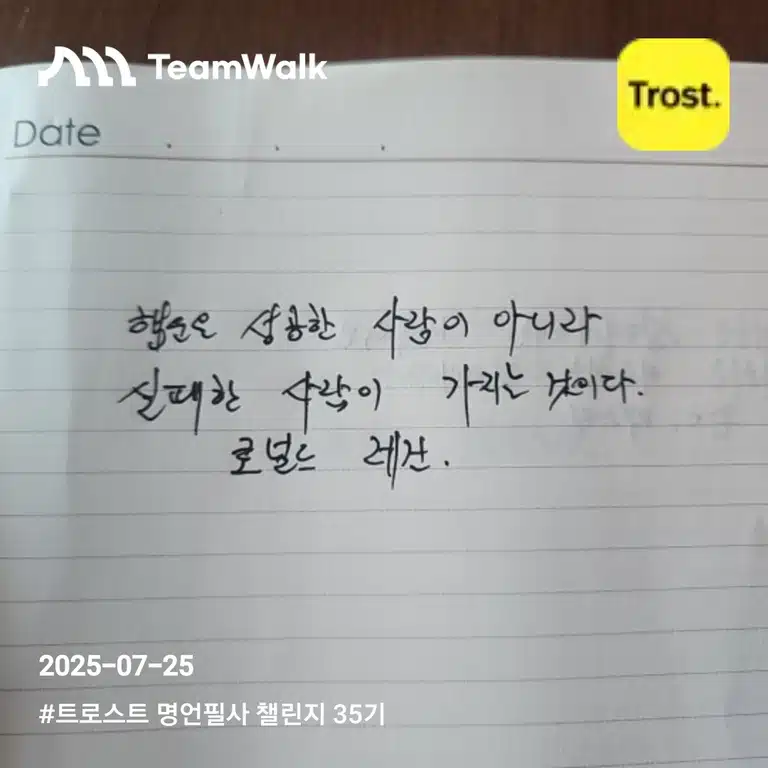 TeamWalk
Trost.
Date . . .
성공한 사람이 아니라
실패한 사람이 가리는 것이다.
로널드 레건.
2025-07-25
#트로스트 명언필사 챌린지 35기